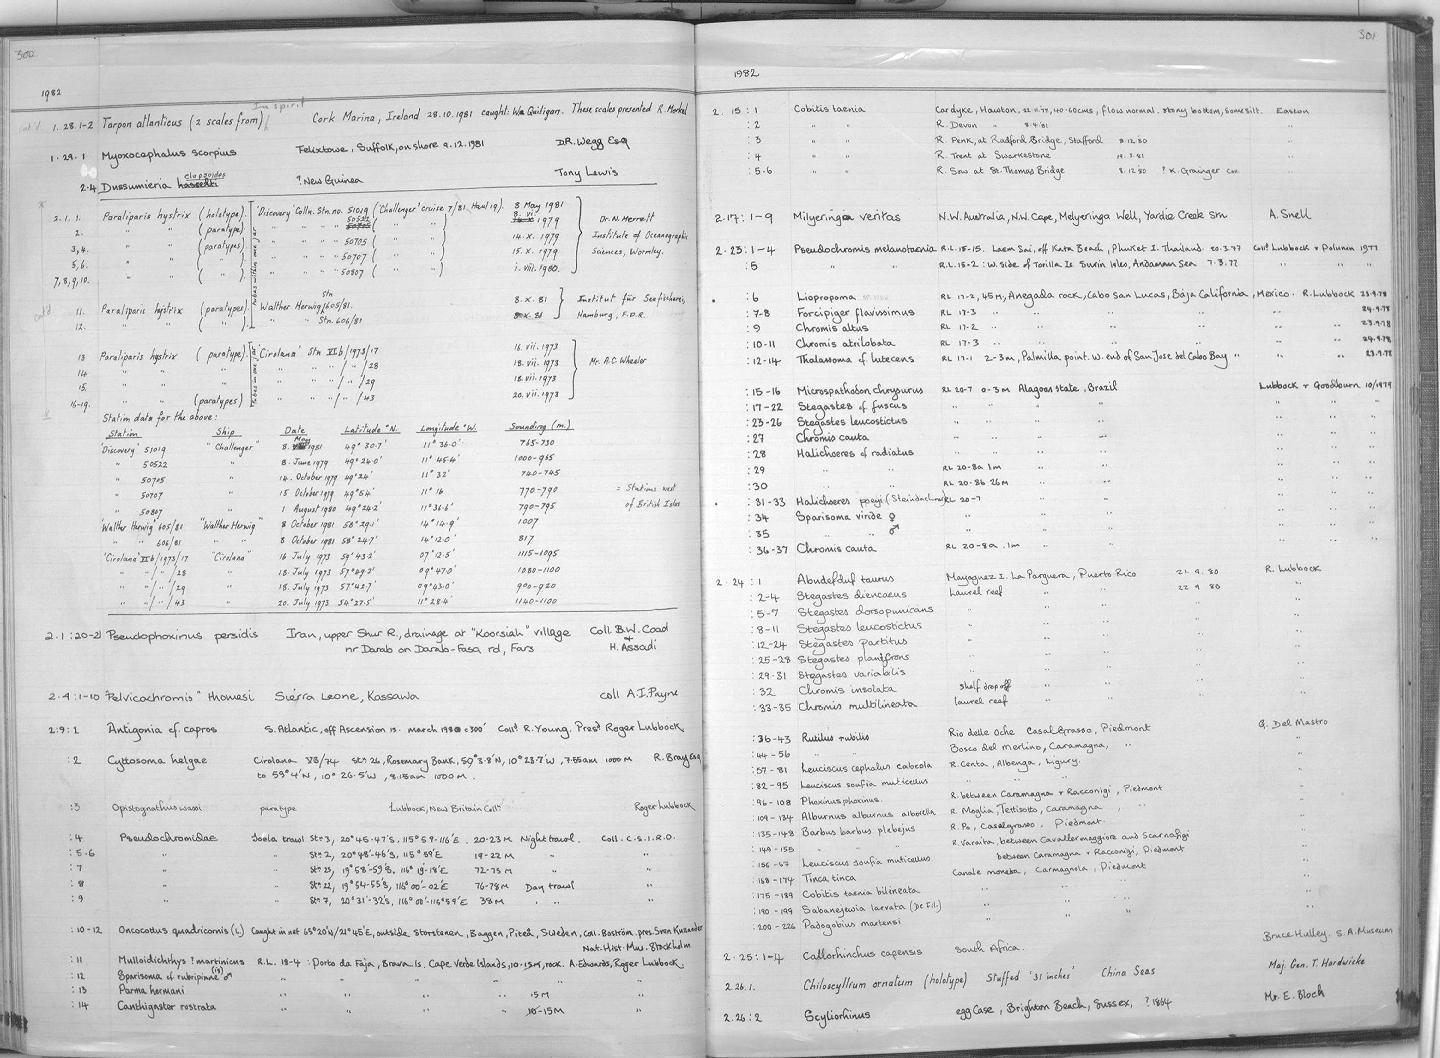 300
1982
In spirit
1. 28.1-2 Tarpon atlanticus (2 scales from) Cork Marina, Ireland 28.10.1981 caught: Wm Quiligan. These scales presented R. Morkel
1. 29. 1 Myoxocephalus scorpius Felixtowe, Suffolk, on shore 9.12.1981 D.R. Wegg Esq
clupeoides
2.4 Dussumieria hasselti ? New Guinea Tony Lewis
2. 1. 1. Paraliparis hystrix (holotype). 'Discovery' Colln. Stn. no. 51019 ('Challenger' cruise 7/81, Haul 19). 8 May 1981
2. " " (paratype) " " " " 50522 1979 Dr. N. Merrett
3,4. " " (paratypes) " " " " 50705 ( " " ) 14. x. 1979 Institute of Oceanographic
5,6. " " ( " ) " " " " 50707 ( " " ) 15. x. 1979 Sciences, Wormley.
7,8,9,10. " " ( " ) " " " " 50807 ( " " ) 1. viii. 1980.
11. Paraliparis hystrix (paratypes) Walther Herwig Stn 605/81. 8. x. 81 Institut für Seefischerei,
12. " " ( " ) " " Stn. 606/81 8. x. 81 Hamburg, F.D.R.
13 Paraliparis hystrix (paratype). 'Cirolana' Stn VIb/1973/17 16. vii. 1973 Mr. A.C. Wheeler
14 " " " " " " / " /28 18. vii. 1973
15. " " " " " " / " /29 18. vii. 1973
16-19. " " (paratypes) " " " / " /43 20. vii. 1973
Station data for the above:
Station Ship Date Latitude °N. Longitude °W. Sounding (m.)
'Discovery' 51019 "Challenger" 8. May 1981 49° 30.7' 11° 36.0' 765-730
" 50522 " 8. June 1979 49° 24.0' 11° 45.4' 1000-965
" 50705 " 14. October 1979 49° 24' 11° 32' 740-745
" 50707 " 15 October 1979 49° 54' 11° 16 770-790 = Stations west
" 50807 " 1 August 1980 49° 24.2' 11° 36.6' 790-795 of British Isles
'Walther Herwig' 605/81 "Walther Herwig" 8 October 1981 58° 29.1' 14° 14.9' 1007
" 606/81 " 8 October 1981 58° 24.7' 14° 12.0' 817
'Cirolana' VIb/1973/17 "Cirolana" 16 July 1973 59° 43.2' 07° 12.5' 1115-1095
" " / " / 28 " 18. July 1973 57° 49.2' 09° 47.0' 1080-1100
" " / " /29 " 18. July 1973 57° 42.7' 09° 43.0' 900-920
" " / " /43 " 20. July 1973 54° 27.5' 11° 28.4' 1140-1100
2. 1 : 20-21 Pseudophoxinus persidis Iran, upper Shur R., drainage at "Koorsiah" village Coll. B.W. Coad
nr Darab on Darab-Fasa rd, Fars + H. Assadi
2. 4 : 1-10 "Pelvicachromis" thomasi Sierra Leone, Kassawa coll A.I. Payne
2:9:1 Antigonia cf. capros S. Atlantic, off Ascension Is. march 1980 c300' Coll d R. Young. Pres d Roger Lubbock
:2 Cyttosoma helgae Cirolana 3B/74 Stn 26, Rosemary Bank, 59° 3.8'N, 10° 23.7'W, 7.55am 1000 M R. Bray Esq
to 59° 4'N, 10° 26.5'W, 8.15am 1000 M.
:3 Opistognathus wassi paratype Lubbock, New Britain Colln Roger Lubbock
:4 Pseudochromidae Soela trawl Stn 3, 20° 45-47'S, 115° 59-116'E. 20-23 M Night trawl. Coll. C.S.I.R.O.
:5-6 " Stn 2, 20° 48'-46'S, 115° 59'E 19-22 M " "
:7 " Stn 25, 19° 58'-59'S, 116° 19'-18'E 72-75 M " "
:8 " Stn 22, 19° 54-55'S, 116° 00'-02'E 76-78 M Day trawl "
:9 " Stn 7, 20° 31'-32'S, 116° 00'-115° 59'E 38 M " " "
:10-12 Oncocottus quadricornis (L) Caught in net 65° 20'N/21° 45'E, outside Storstenen, Baggen, Piteå, Sweden, Coll. Boström, pres. Sven Kullander
Nat. Hist. Mus. Stockholm
:11 Mulloidichthys ? martinicus R.L. 18-4 : Porto da Faja, Brava Is. Cape Verde Islands, 10-15 M, rock. A. Edwards, Roger Lubbock.
:12 Sparisoma cf rubripinne ♂ " " " " "
:13 Parma hermani " " " 15 M "
:14 Canthigaster rostrata " " " 10-15 M "
301
1982
2. 15 : 1 Cobitis taenia Car dyke, Hawton, 22.11.77, 40-60 cms, flow normal. Stony bottom, some silt. Easton
:2 " " R. Devon " 8.4.81 "
:3 " " R. Penk, at Radford Bridge, Stafford 8.12.80 "
:4 " " R. Trent at Swarkestone 19.3.81 "
:5-6 " " R. Sow at St. Thomas Bridge 8.12.80 ? K. Grainger Coll "
2. 17 : 1-9 Milyeringa veritas N.W. Australia, N.W. Cape, Milyeringa Well, Yardie Creek Stn A. Snell
2. 23 : 1-4 Pseudochromis melanotaenia R.L. 15-15. Laem Sai, off Kata Beach, Phuket I. Thailand. 20.3.77 Coll d Lubbock + Polunin 1977
:5 " " R.L. 15-2 : W. side of Torilla Is Surin Isles, Andaman Sea 7.3.77 "
:6 Liopropoma RL 17-2, 45M, Anegada rock, Cabo San Lucas, Baja California, Mexico. R. Lubbock 23.9.78
:7-8 Forcipiger flavissimus RL 17-3 " " " " 24.9.78
:9 Chromis altus RL 17-2 " " " " 23.9.78
:10-11 Chromis atrilobata RL 17-3 " " " " 24.9.78
:12-14 Thalassoma cf lutecens RL 17-1 2-3 M, Palmilla point. W. end of San Jose del Cabo Bay " " 23.9.78
:15-16 Microspathodon chrysurus RL 20-7 0-3 M Alagoas state, Brazil Lubbock + Goodburn 10/1979
:17-22 Stegastes cf fuscus " " " " " "
:23-26 Stegastes leucostictus " " " " " "
:27 Chromis cauta " " " " " "
:28 Halichoeres cf radiatus " " " " " "
:29 " " RL 20-8a 1m " " " "
:30 RL 20-8b 26M " " " "
:31-33 Halichoeres poeyi (Steindachner) RL 20-7 " " " "
:34 Sparisoma viride ♀ " " " " "
:35 " " ♂ " " " " "
:36-37 Chromis cauta RL 20-8a . 1m " " " "
2. 24 : 1 Abudefduf taurus Mayaguez I. La Parguera, Puerto Rico 21. 9. 80 R. Lubbock
:2-4 Stegastes diencaeus Laurel reef " " 22 9 80 "
:5-7 Stegastes dorsopunicans " " " "
:8-11 Stegastes leucostictus " " " "
:12-24 Stegastes partitus " " " "
:25-28 Stegastes planifrons " " " "
:29-31 Stegastes variabilis " " " "
:32 Chromis insolata shelf drop off " " "
:33-35 Chromis multilineata laurel reef " " "
:36-43 Rutilus rubilio Rio delle Oche Casalgrasso, Piedmont G. Del Mastro
:44-56 " " Bosco del merlino, Caramagna, " "
:57-81 Leuciscus cephalus cabeda R. Centa, Albenga, Ligury. "
:82-95 Leuciscus soufia muticellus " " "
:96-108 Phoxinus phoxinus. R. between Caramagna + Racconigi, Piedmont "
:109-134 Alburnus alburnus alborella R. Moglia, Tettisotto, Caramagna " "
:135-148 Barbus barbus plebejus R. Po, Casalgrasso, Piedmont. "
:149-155 " " " R. Varaita, between Cavallermaggiore and Scarnafigi "
:156-67 Leuciscus soufia muticellus between Caramagna + Racconigi, Piedmont "
:168-174 Tinca tinca Canale moneta, Carmagnola, Piedmont "
:175-189 Cobitis taenia bilineata " " " "
:190-199 Sabanejewia larvata (De Fil.) " " " "
:200-226 Padogobius martensi " " " "
2. 25 : 1-4 Callorhinchus capensis South Africa. Bruce Hulley. S.A. Museum
2. 26. 1. Chiloscyllium ornatum (holotype) Stuffed '31 inches' China Seas Maj. Gen. T. Hardwicke
2. 26 : 2 Scyliorhinus egg case, Brighton Beach, Sussex, ? 1864 Mr. E. Bloch